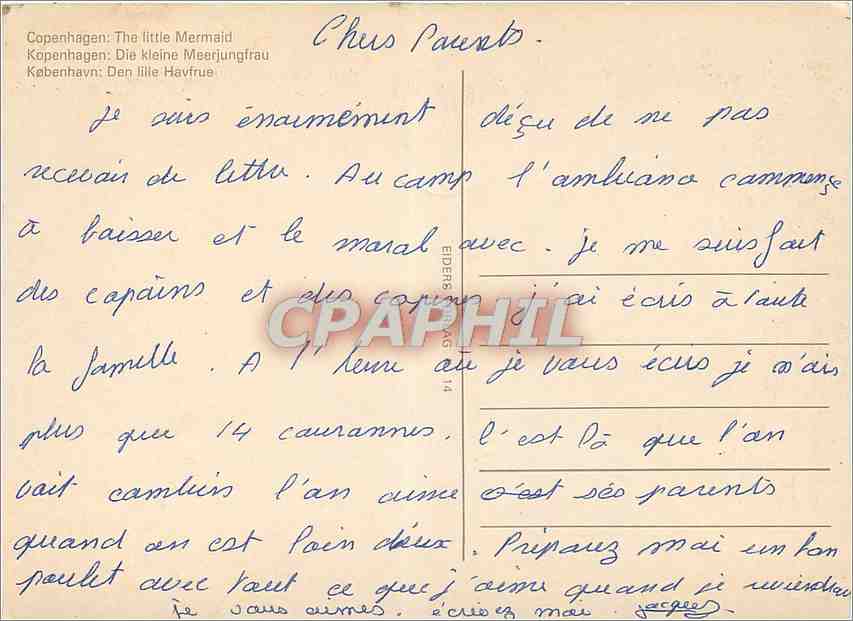 Copenhagen: The little Mermaid
Kopenhagen: Die kleine Meerjungfrau
København: Den lille Havfrue
Chers Parents.
je suis énormément déçu de ne pas
recevoir de lettre. Au camp l'ambiance commençe
à baisser et le moral avec. je me suis fait
des copains et des copines j'ai écris à toute
la famille. A l'heure où je vous écris je n'ais
plus que 14 couronnes. c'est là que l'on
voit combien l'on aime c'est ses parents
quand on est loin d'eux. Préparez moi un bon
poulet avec tout ce que j'aime quand je reviendrai
je vous aimes. écrivez moi. jacques
EIDERS AG 14
CPAPHIL